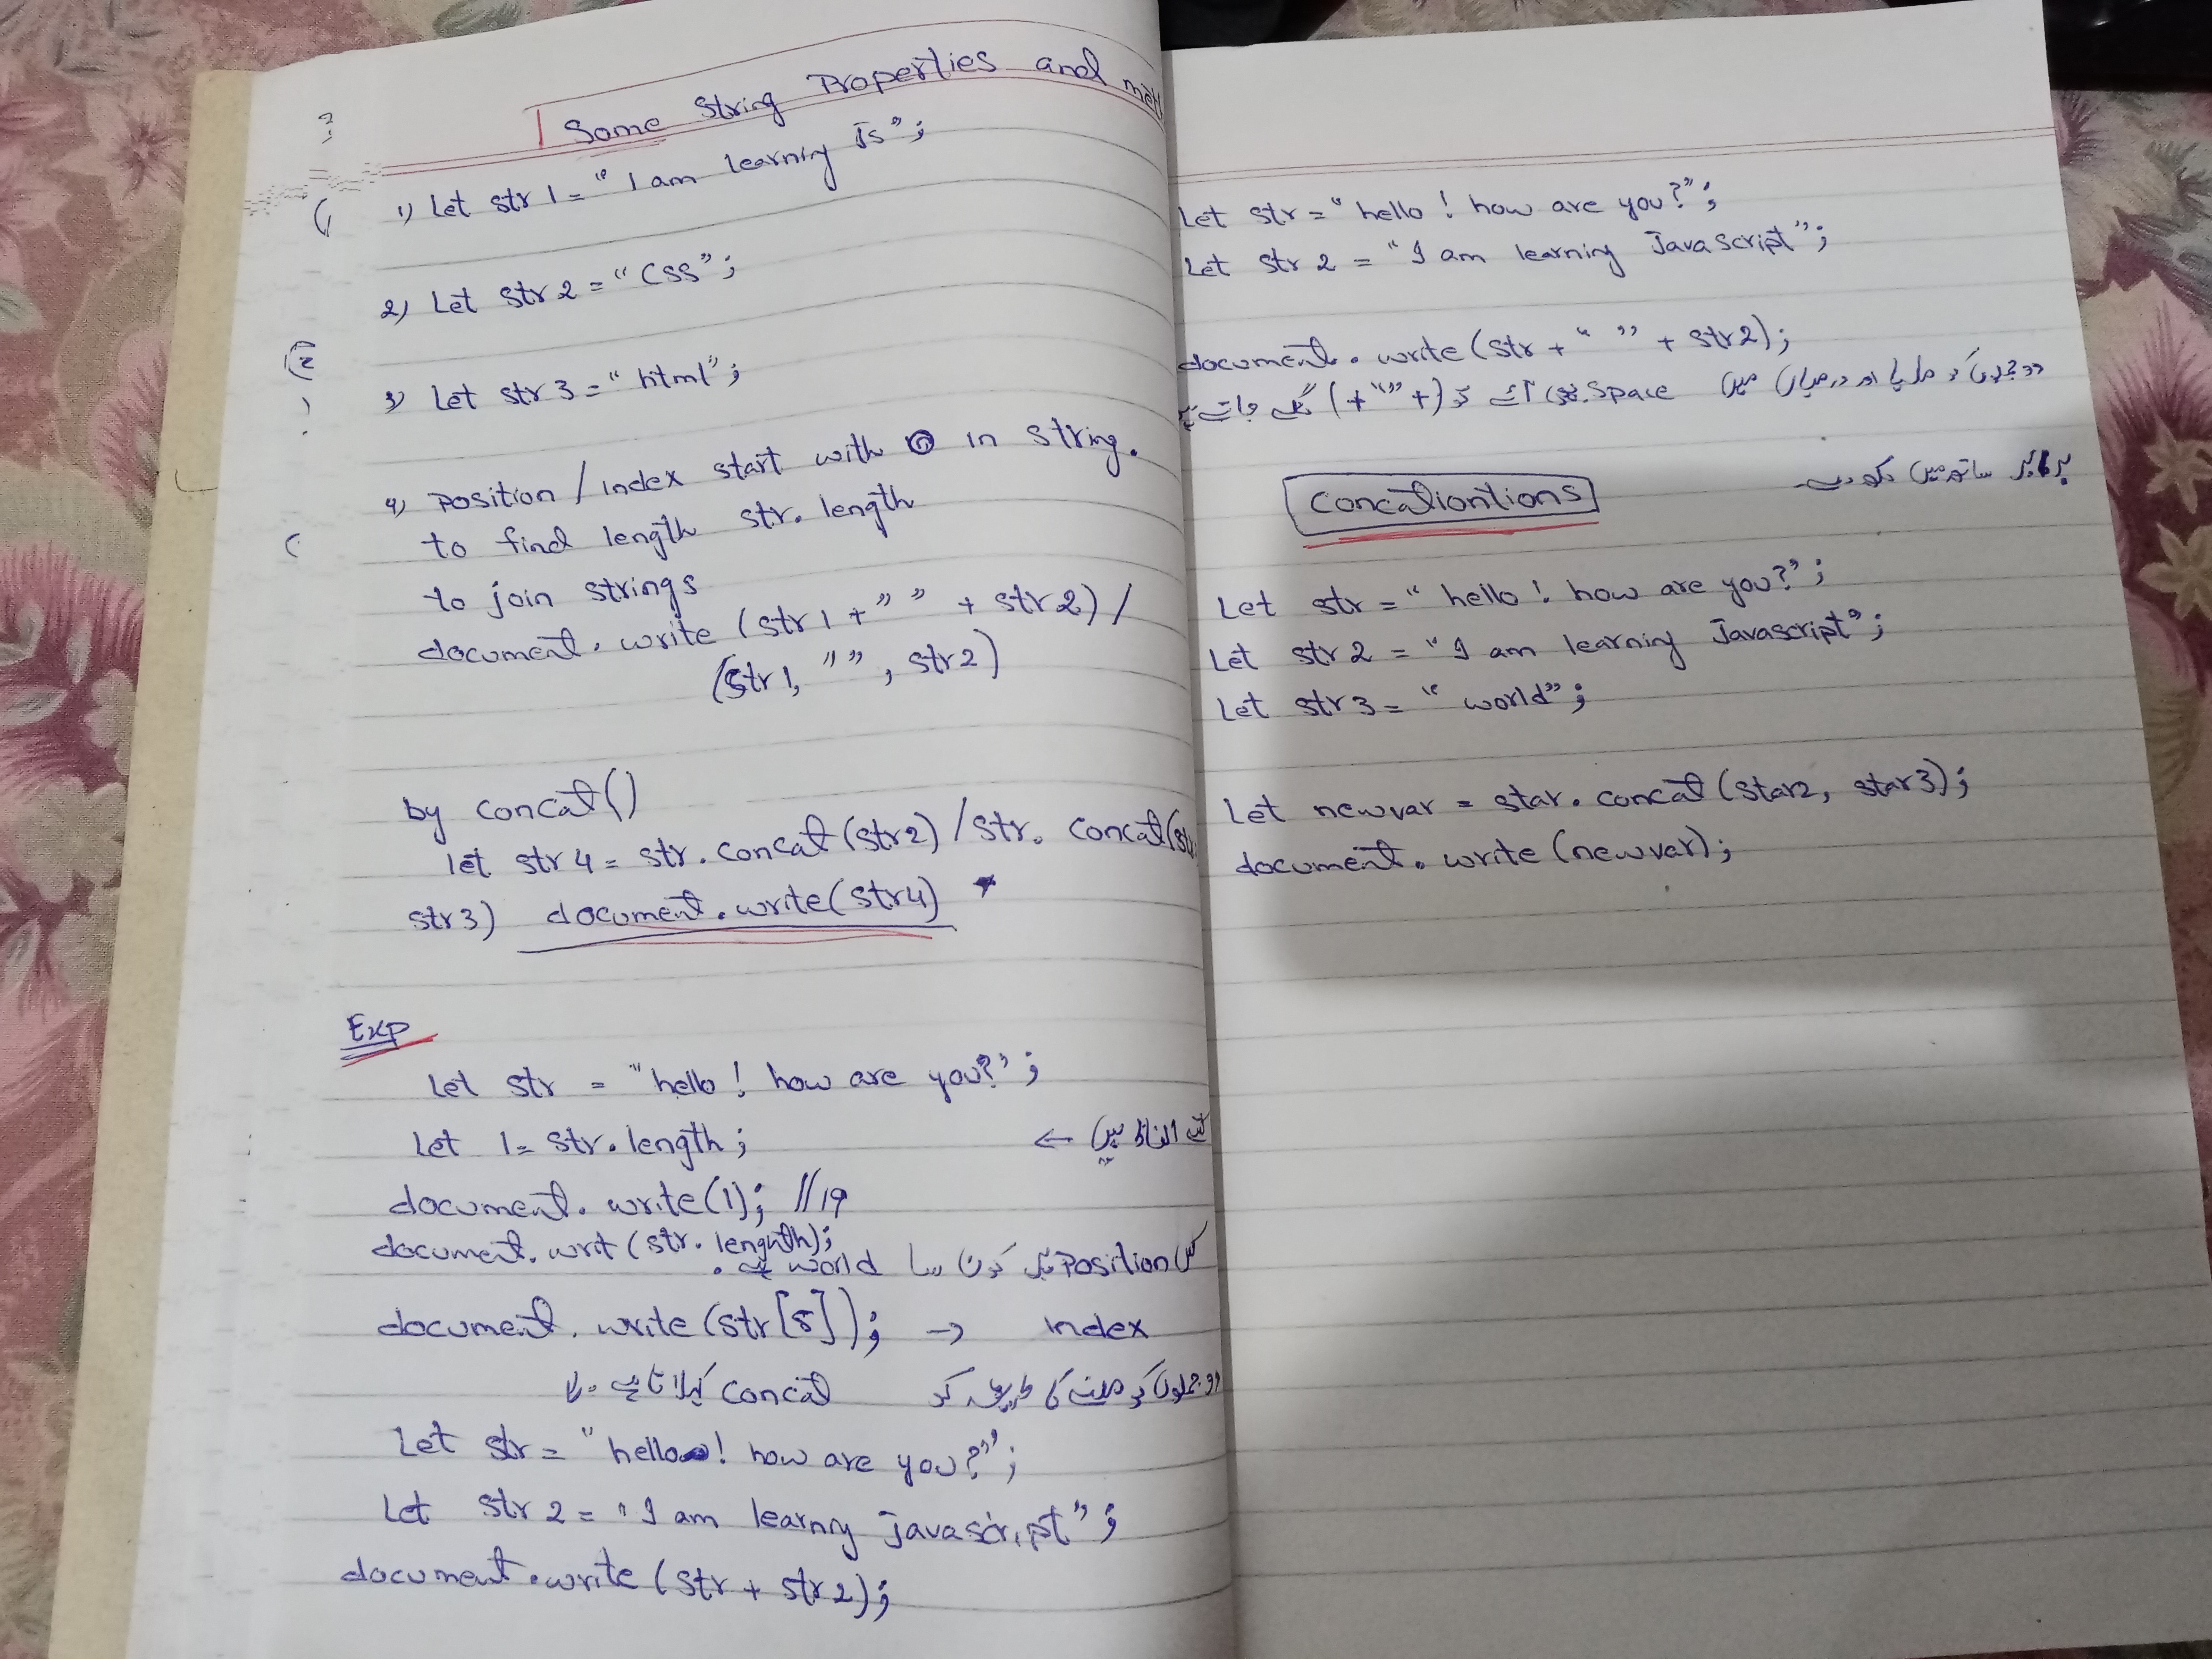 Some String Properties and meth
1) Let str 1 = "I am learning Js";
2) Let str 2 = "CSS";
3) Let str 3 = "html";
4) Position / Index start with 0 in string.
to find length str. length
to join strings
document. write (str 1 + " " + str 2) /
(str 1, " " , str 2)
by concat()
let str 4 = str. concat (str 2) / str. concat (st
str 3) document. write (str4)
Exp
Let str = "hello! how are you?";
Let l = str. length;
کتنے الفاظ ہیں ←
document. write (l); //19
document. writ (str. lenghth);
کس Position پر کون سا world ہے.
document. write (str[5]); → Index
دو جملوں کو ملانے کا طریقہ کو concat کہلاتا ہے۔
Let str = "hello! how are you?";
Let str 2 = "I am learnng javascript";
document. write (str + str 2);
Let str = "hello! how are you?";
Let str 2 = "I am learning JavaScript";
document. write (str + " " + str 2);
دو جملوں کو ملایا اور درمیان میں Space آئے تو (+" "+)
ساتھ میں
Concationtions
Let str = "hello! how are you?";
Let str 2 = "I am learning Javascript";
Let str 3 = "world";
Let newvar = star. concat (star2, star3);
document. write (newvar);